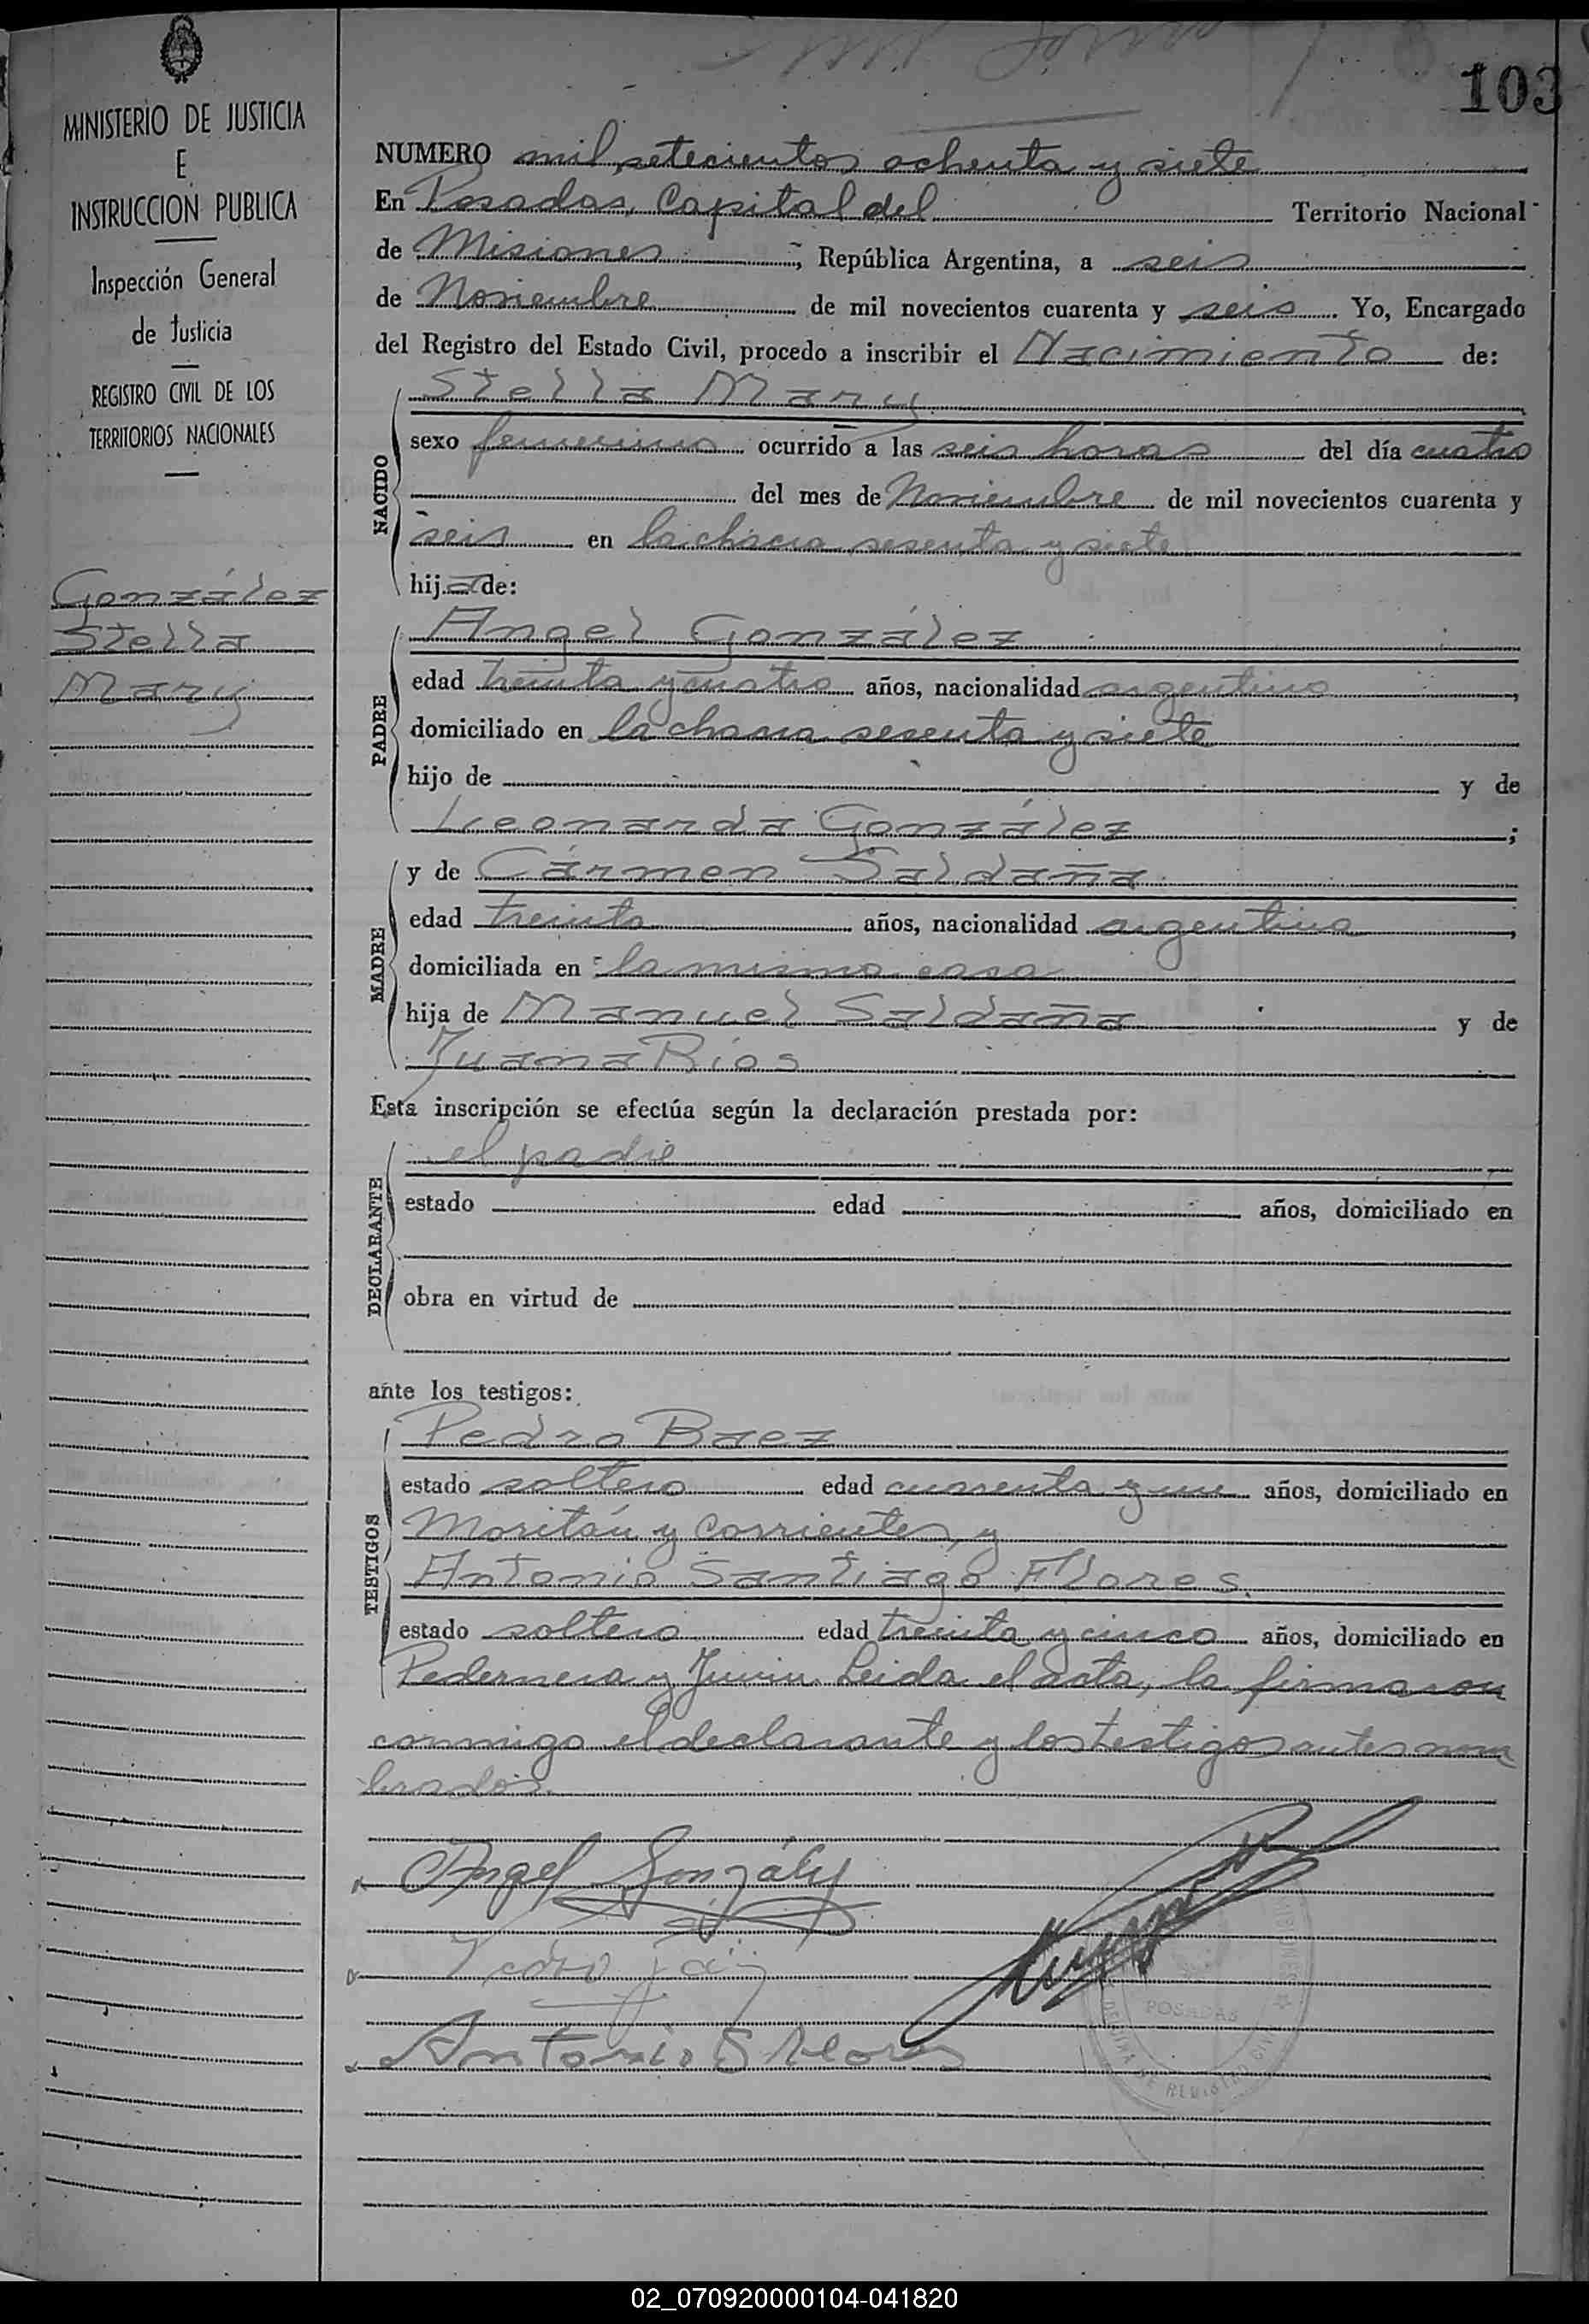 103
MINISTERIO DE JUSTICIA
E
INSTRUCCION PUBLICA
Inspección General
de Justicia
REGISTRO CIVIL DE LOS
TERRITORIOS NACIONALES
González
Stella
Mary
NUMERO mil setecientos ochenta y siete
En Posadas, Capital del Territorio Nacional
de Misiones, República Argentina, a seis
de Noviembre de mil novecientos cuarenta y seis. Yo, Encargado
del Registro del Estado Civil, procedo a inscribir el Nacimiento de:
Stella Mary
NACIDO
sexo femenino ocurrido a las seis horas del día cuatro
del mes de Noviembre de mil novecientos cuarenta y
seis en la chacra sesenta y siete
hija de:
Angel González
PADRE
edad treinta y cuatro años, nacionalidad argentino,
domiciliado en la chacra sesenta y siete
hijo de y de
Leonarda González;
MADRE
y de Cármen Saldaña
edad treinta años, nacionalidad argentina,
domiciliada en la misma casa
hija de Manuel Saldaña y de
Juana Ríos
Esta inscripción se efectúa según la declaración prestada por:
el padre
DECLARANTE
estado edad años, domiciliado en
obra en virtud de
ante los testigos:
Pedro Baez
TESTIGOS
estado soltero edad cuarenta y un años, domiciliado en
y Corrientes, y
Antonio Santiago Flores.
estado soltero edad treinta y cinco años, domiciliado en
Pedernera y Junin. Leida el acta, la firmaron
conmigo el declarante y los testigos antes nom
brados.
Angel González
Pedro
Antonio S Flores
POSADAS
MISIONES
OFICINA DE REGISTRO CIVIL
02_070920000104-041820